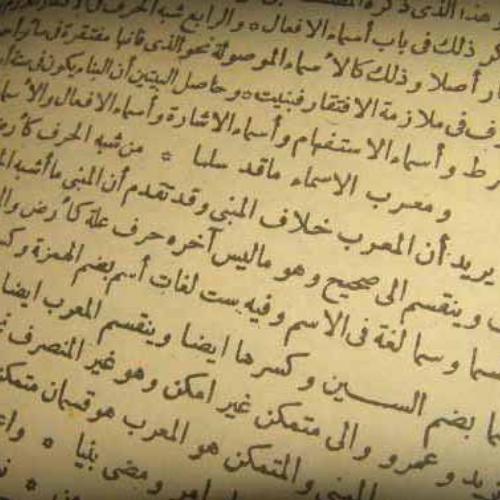 هذا الذى ذكره
كر ذلك فى باب أسماء الافعال * والرابع شبه الحرف فى الافتقار
ار أصلا وذلك كالأسماء الموصولة نحو الذى فانها مفتقرة فى سائر
رف فى ملازمة الافتقار فبنيت * وحاصل البيتين أن البناء يكون فى ستة
رط وأسماء الاستفهام وأسماء الاشارة وأسماء الافعال والأسما
ومعرب الاسماء ماقد سلما * من شبه الحرف كأرض
يريد أن المعرب خلاف المبنى وقد تقدم أن المبنى ما أشبه ال
وينقسم الى صحيح وهو ماليس آخره حرف علة كأرض وال
سما وسما لغة فى الاسم وفيه ست لغات أسم بضم الهمزة وكس
ما بضم السين وكسرها ايضا وينقسم المعرب ايضا
يد وعمرو والى متمكن غير امكن وهو غير المنصرف
المبنى والمتمكن هو المعرب هو قسمان متمكن
امر ومضى بنيا *